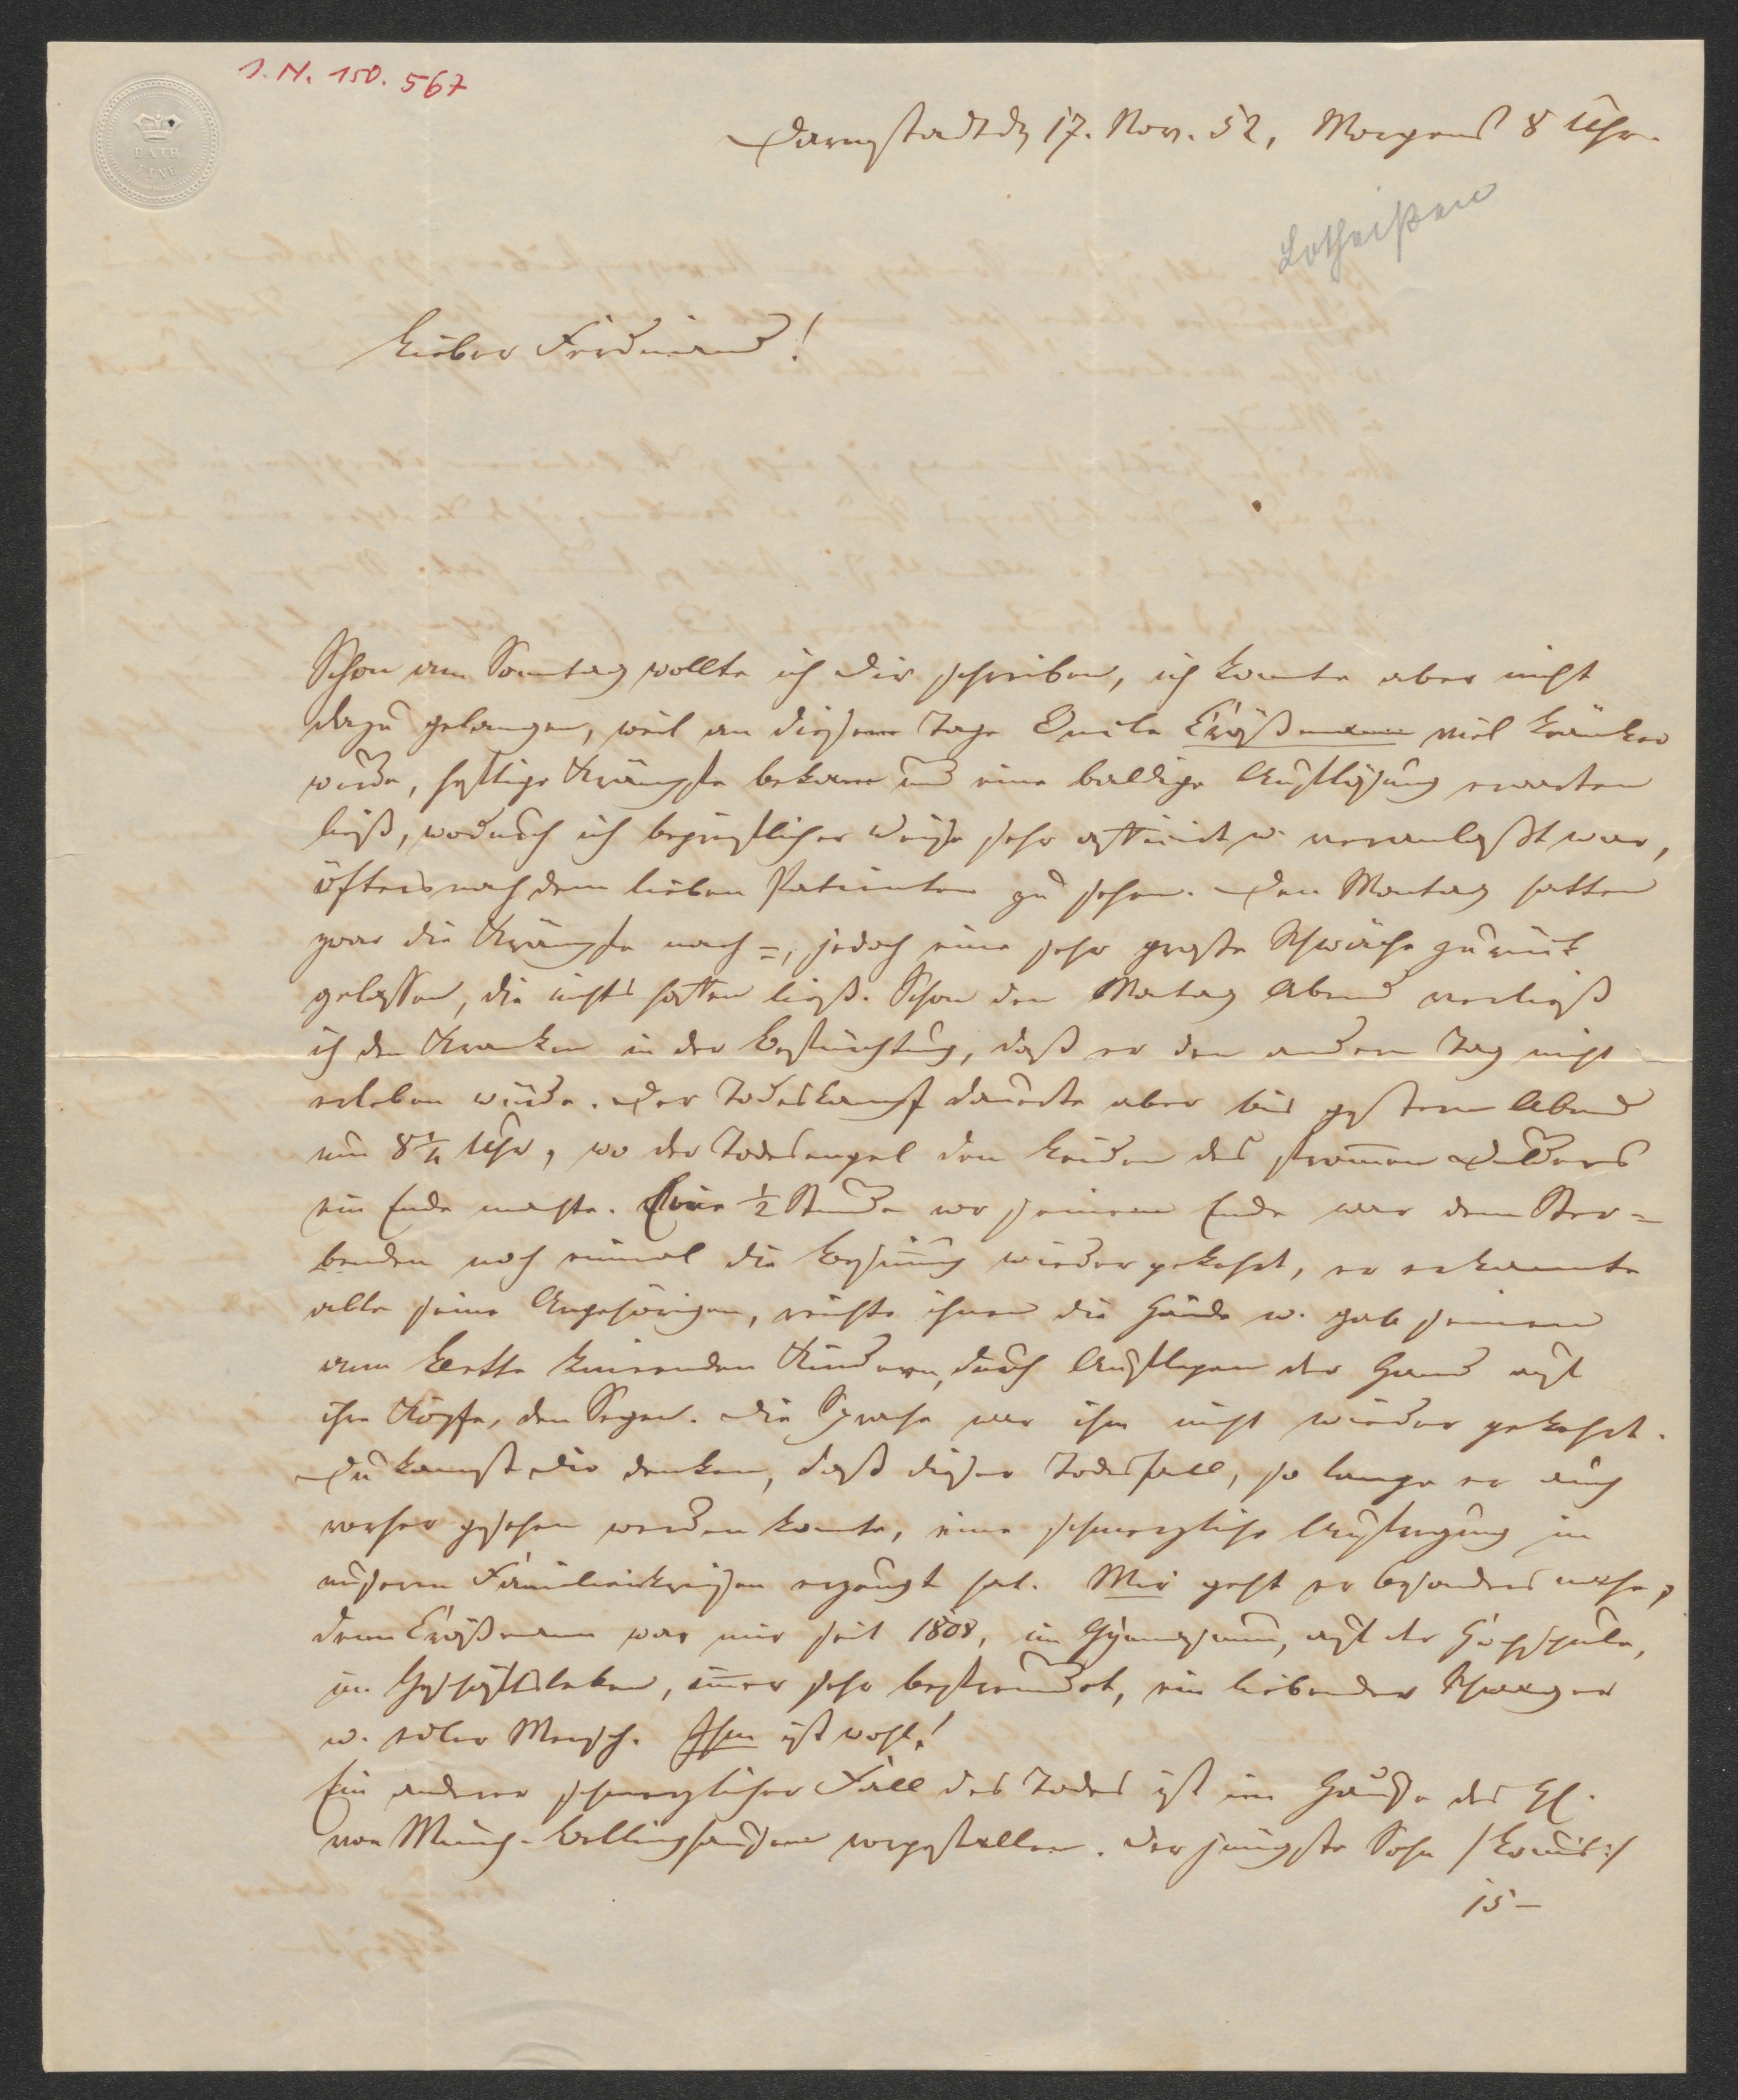 I. N. 150.567
BATH
FINE
Darmstadt d. 17. Nov. 52, Morgens 8 Uhr.
Lotheißen
Lieber Ferdinand!
Schon am Sonntag wollte ich Dir schreiben, ich konnte aber nicht
dazu gelangen, weil an diesem Tage Onkle Croßmann viel kränker
wurde, heftige Krämpfe bekam und eine baldige Auflösung erwarten
ließ, wodurch ich begreiflicher Weise sehr afficirt u. veranlaßt war,
öfters nach dem lieben Patienten zu sehen. Den Montag hatten
zwar die Krämpfe nach=, jedoch eine sehr große Schwäche zurück
gelassen, die nichts hoffen ließ. Schon den Montag Abend verließ
ich den Kranken in der Befürchtung, daß er den andern Tag nicht
erleben würde. Der Todeskampf dauerte aber bis gestern Abend
um 8¼ Uhr, wo der Todesengel den Leiden des frommen Dulders
ein Ende machte. Eine ½ Stunde vor seinem Ende war dem Ster=
benden noch einmal die Besinnung wieder gekehrt, er erkannte
alle seine Angehörigen, reichte ihnen die Hände u. gab seinen
am Bette knieenden Kindern, durch Auflegen der Hand auf
ihre Köpfe, den Segen. Die Sprache war ihm nicht wieder gekehrt.
Du kannst Dir denken, daß dieser Todesfall, so lange er auch
vorher gesehen werden konnte, eine schmerzliche Aufregung in
unseren Familienkreisen erzeugt hat. Mir geht er besonders nahe,
denn Croßmann war mir seit 1808, im Gymnasium, auf der Hochschule,
im Geschäftsleben, immer sehr befreundet, ein liebender Schwager
u. edler Mensch. Ihm ist wohl!
Ein anderer schmerzlicher Fall des Todes ist im Hause des H.
von Münch-Bellinghausen vorgefallen. Der jüngste Sohn /:Louis:/
15-